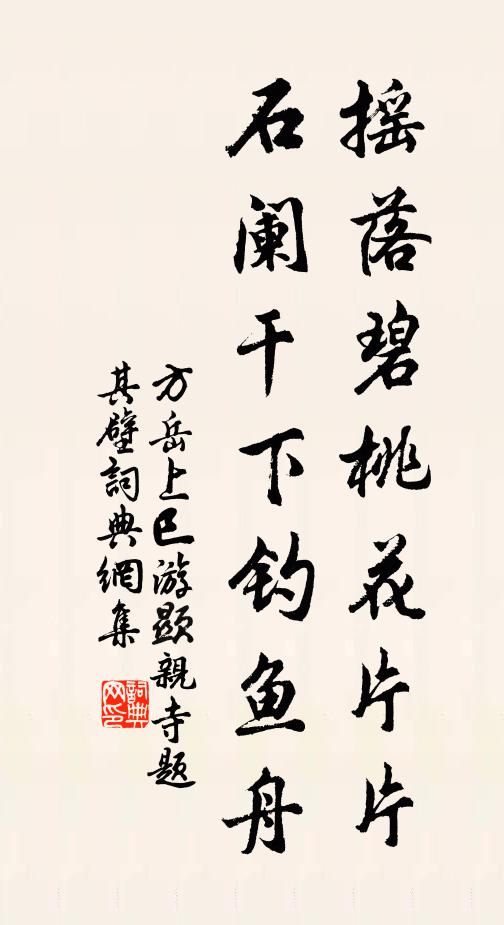 摇落碧桃花片片
石阑干下钓鱼舟
方岳上巳游顯親寺题
其壁詞典網集
詞典网印